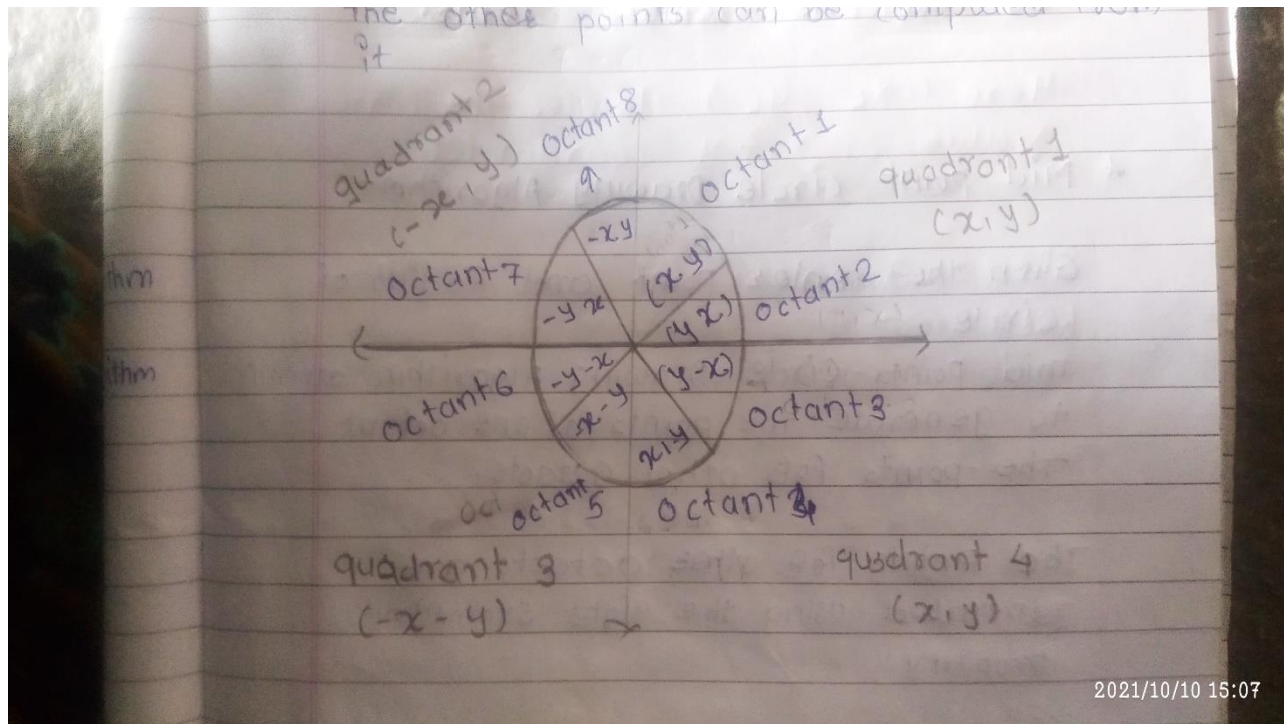 the other points can be computed from
it
quadrant 2
(-x, y)
octant 8
octant 1
quadront 1
(x, y)
octant 7
-x y
(x y)
octant 2
-y x
(y x)
thm
ithm
-y -x
(y -x)
octant 6
-x - y
x, y
octant 3
octant
5
octant 4
quadrant 3
(-x - y)
qusdrant 4
(x, y)
2021/10/10 15:07